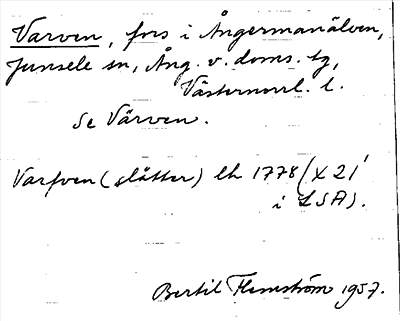 Varven, fors i Ångermanälven,
Junsele sn, Ång. v. doms. tg,
Västernorrl. l.
se Värven.
Varfven (slåtter) lh 1778 (X 21
i LSA).
Bertil Flemström 1957.